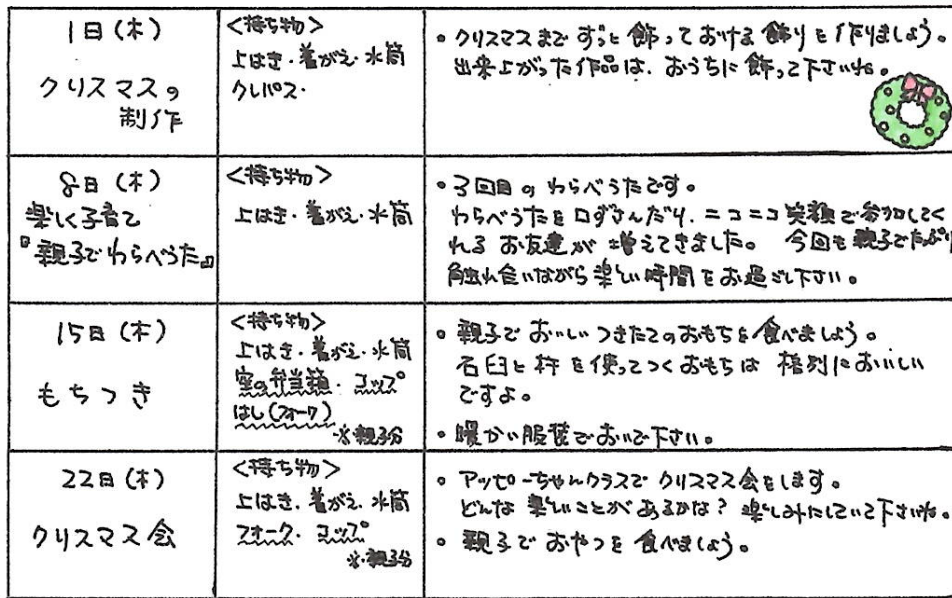 1日(木)
クリスマスの
制作
<持ち物>
上はき・着がえ・水筒
クレパス・
・クリスマスまで ずっと 飾って おける 飾り を 作りましょう。
出来上がった作品は、おうちに 飾って下さいね。
8日(木)
楽しく子育て
『親子でわらべうた』
<持ち物>
上はき・着がえ・水筒
・3回目の わらべうたです。
わらべうたを口ずさんだり、ニコニコ笑顔で参加してく
れる お友達が 増えてきました。 今回も親子でたっぷり
触れ合いながら楽しい時間をお過ごし下さい。
15日(木)
もちつき
<持ち物>
上はき・着がえ・水筒
空の弁当箱・コップ
はし(フォーク)
※親子分
・親子で おいしい つきたてのおもちを食べましょう。
石臼と杵を使ってつくおもちは 格別においしい
ですよ。
・暖かい服装でおいで下さい。
22日(木)
クリスマス会
<持ち物>
上はき・着がえ・水筒
フォーク・コップ
※親子分
・アッピーちゃんクラスで クリスマス会をします。
どんな 楽しいことが あるかな? 楽しみにしていて下さいね。
・親子で おやつを 食べましょう。